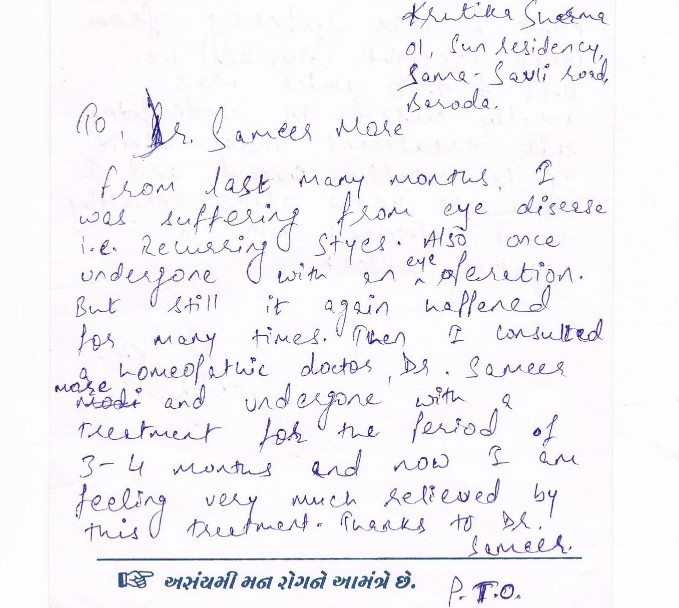 Krutika Sharma
01, Sun residency,
Sama-Savli road,
Baroda.
To, Dr. Sameer More
from last many months, I
was suffering from eye disease
i.e. Recurring Styes. Also once
undergone with an eye operation.
But still it again happened
for many times. Then I consulted
a homeopathic doctor, Dr. Sameer
more Modi and undergone with a
treatment for the period of
3-4 months and now I am
feeling very much relieved by
this treatment. Thanks to Dr.
Sameer.
અસંયમી મન રોગને આમંત્રે છે.
P.T.O.